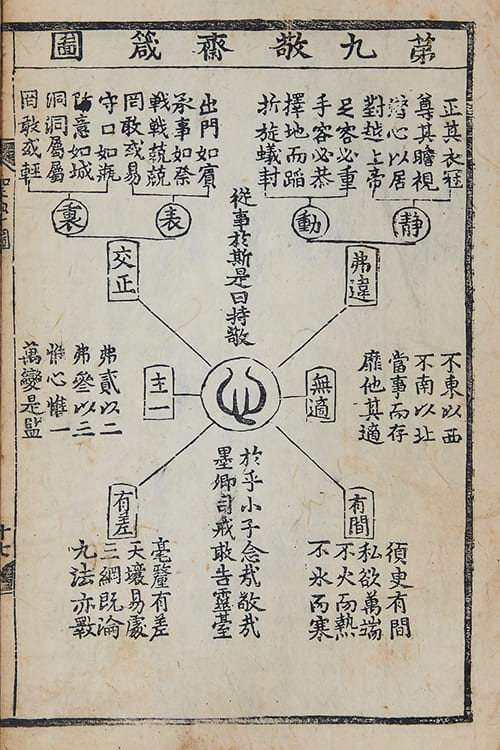 苐九敬齋箴圖
正其衣冠
尊其瞻視
潛心以居
對越上帝
足容必重
手容必恭
擇地而蹈
折旋蟻封
出門如賓
承事如祭
戰戰兢兢
罔敢或易
守口如瓶
防意如城
洞洞屬屬
罔敢或輕
静
動
表
裏
弗違
交正
從事於斯是曰持敬
心
無適
主一
不東以西
不南以北
當事而存
靡他其適
弗貳以二
弗參以三
惟心惟一
萬變是監
有間
有差
須臾有間
私欲萬端
不火而熱
不氷而寒
於乎小子念哉敬哉
墨卿司戒敢告靈臺
毫釐有差
天壤易處
三綱既淪
九法亦斁
十七